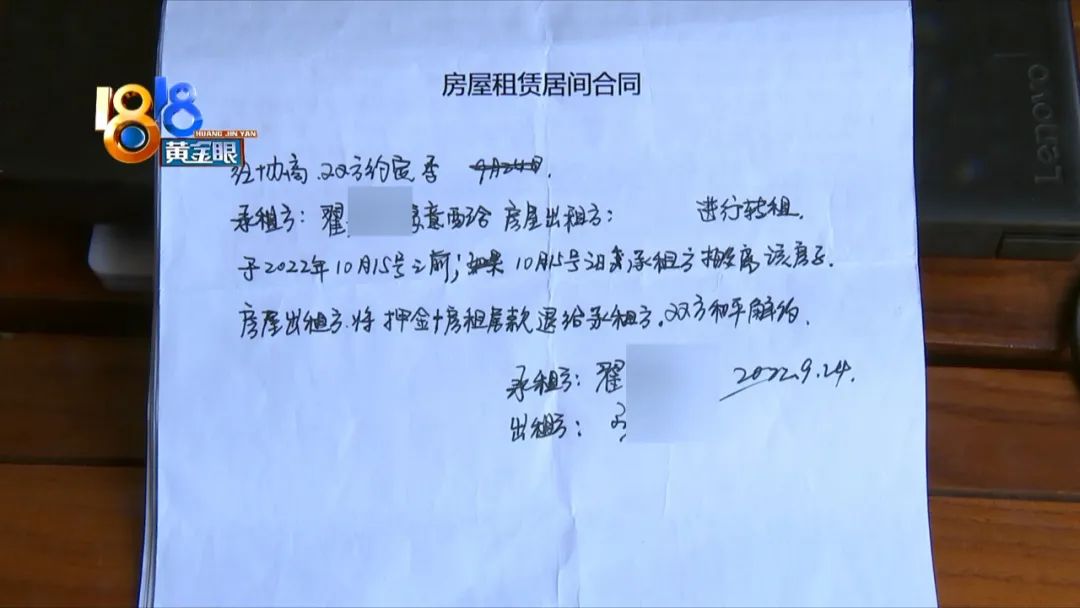 1818
HUANG JIN YAN
黄金眼
Lenovo
房屋租赁居间合同
经协商.双方约定于 9月24日.
承租方：翟 意配给 房屋出租方： 进行转租.
于2022年10月15号之前；如果10月15号没 承租方搬离该房子.
房屋出租方.将押金+房租 款退给承租方.双方和平解约.
承租方：翟 2022.9.24.
出租方：